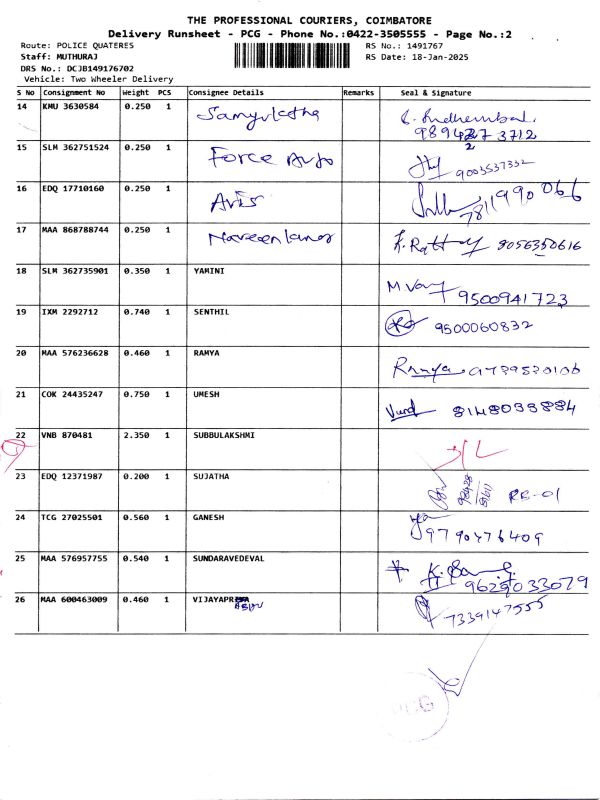 THE PROFESSIONAL COURIERS, COIMBATORE
Delivery Runsheet - PCG - Phone No.:0422-3505555 - Page No.:2
Route: POLICE QUATERES
RS No.: 1491767
Staff: MUTHURAJ
RS Date: 18-Jan-2025
DRS No.: DCJB149176702
Vehicle: Two Wheeler Delivery
S No Consignment No Weight PCS Consignee Details Remarks Seal & Signature
14 KMU 3630584 0.250 1
15 SLM 362751524 0.250 1 Force Auto 9003537332
16 EDQ 17710160 0.250 1 7811990066
17 MAA 868788744 0.250 1 9056350616
18 SLM 362735901 0.350 1 YAMINI 9500941723
19 IXM 2292712 0.740 1 SENTHIL 9500060832
20 MAA 576236628 0.460 1 RAMYA Ramya
21 COK 24435247 0.750 1 UMESH 8148033884
22 VNB 870481 2.350 1 SUBBULAKSHMI
23 EDQ 12371987 0.200 1 SUJATHA
24 TCG 27025501 0.560 1 GANESH 9790476409
25 MAA 576957755 0.540 1 SUNDARAVEDEVAL 9629033079
26 MAA 600463009 0.460 1 7339147555